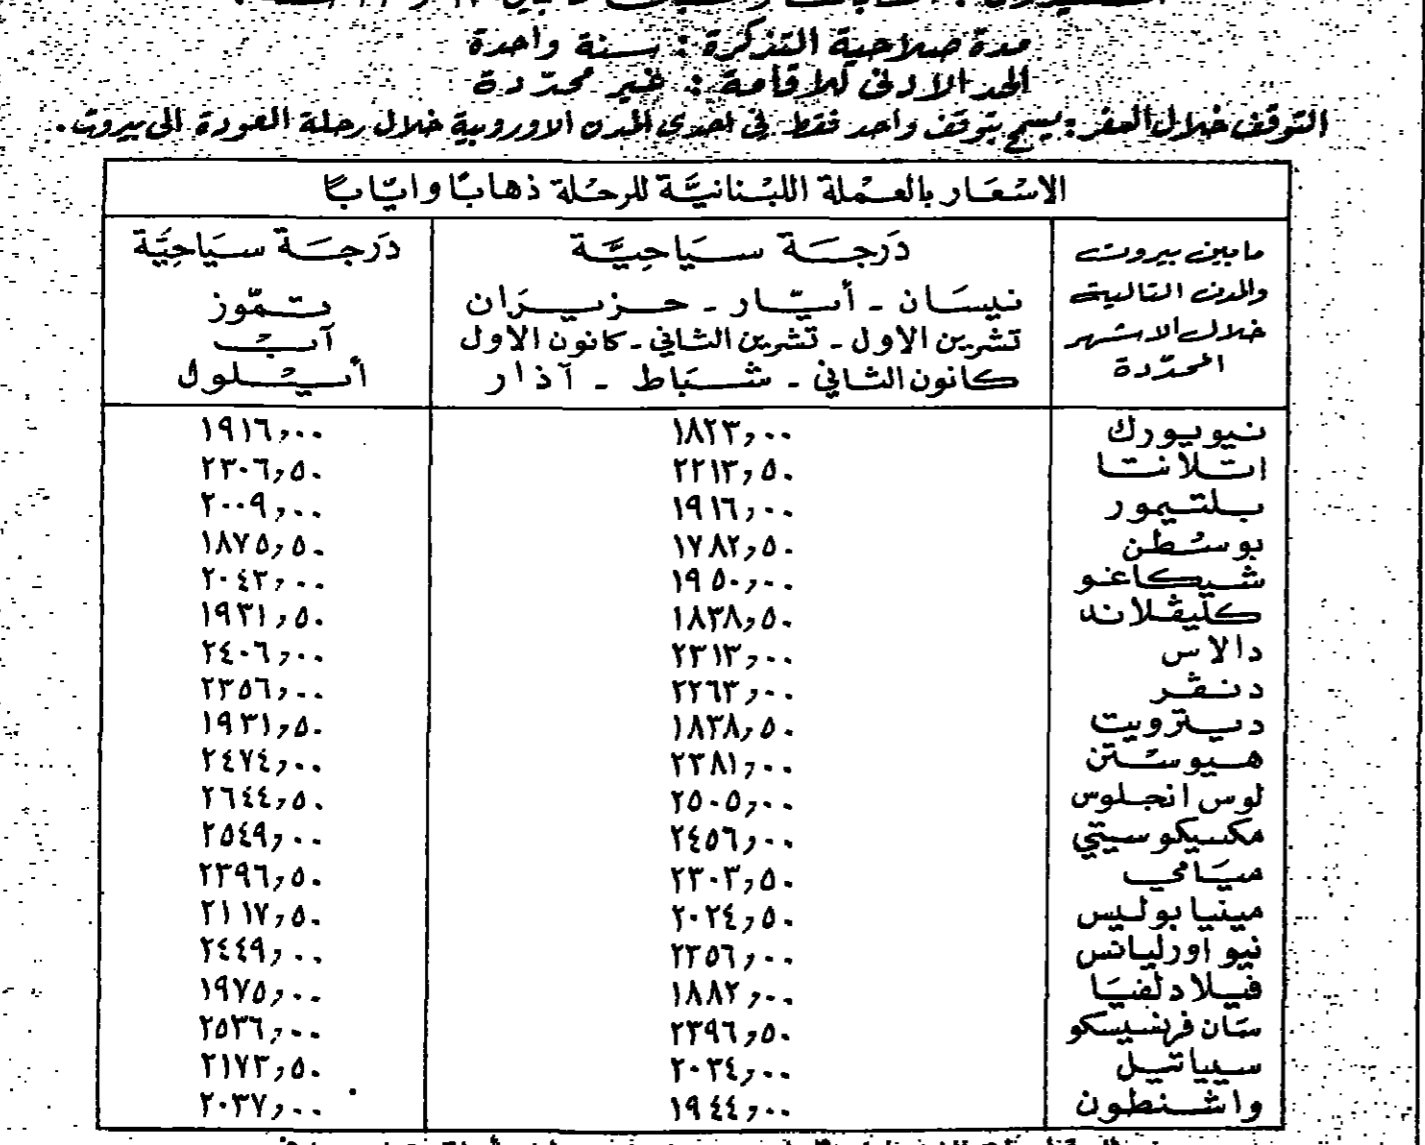 مدة صلاحية التذكرة : سنة واحدة
الحد الادنى للاقامة : غير محدّدة
التوقف خلال السفر : يسمح بتوقف واحد فقط في احدى المدن الاوروبية خلال رحلة العودة الى بيروت.
الاسْعَار بالعـمْلة اللبْنانيَّة للرحْلة ذهابًا وايّابًا
مابين بيروت والمدن التالية خلال الاشهر المحدّدة
دَرجَة سيَاحِيَّة
نيسَان - أيّار - حزيرَان
تشرين الاول - تشرين الثاني - كانون الاول
كانون الثاني - شبَاط - آذار
دَرجَة سيَاحِيَّة
تمّوز
آبْ
أيْلول
نيويورك ١٨٢٣,٠٠ ١٩١٦,٠٠
اتلانتا ٢٢١٣,٥٠ ٢٣٠٦,٥٠
بلتيمور ١٩١٦,٠٠ ٢٠٠٩,٠٠
بوسْطن ١٧٨٢,٥٠ ١٨٧٥,٥٠
شيكاغو ١٩٥٠,٠٠ ٢٠٤٣,٠٠
كليڤلاند ١٨٣٨,٥٠ ١٩٣١,٥٠
دالاس ٢٣١٣,٠٠ ٢٤٠٦,٠٠
دنڤر ٢٢٦٣,٠٠ ٢٣٥٦,٠٠
ديترويت ١٨٣٨,٥٠ ١٩٣١,٥٠
هيوسْتن ٢٣٨١,٠٠ ٢٤٧٤,٠٠
لوس انجلوس ٢٥٠٥,٠٠ ٢٦٤٤,٥٠
مكسيكو سيتي ٢٤٥٦,٠٠ ٢٥٤٩,٠٠
ميَامي ٢٣٠٣,٥٠ ٢٣٩٦,٥٠
مينيابوليس ٢٠٢٤,٥٠ ٢١١٧,٥٠
نيو اورليانس ٢٣٥٦,٠٠ ٢٤٤٩,٠٠
فيلادلفيَا ١٨٨٢,٠٠ ١٩٧٥,٠٠
سَان فرنسيسكو ٢٣٩٦,٥٠ ٢٥٣٦,٠٠
سيياتيل ٢٠٣٤,٠٠ ٢١٧٣,٥٠
واشنطون ١٩٤٤,٠٠ ٢٠٣٧,٠٠